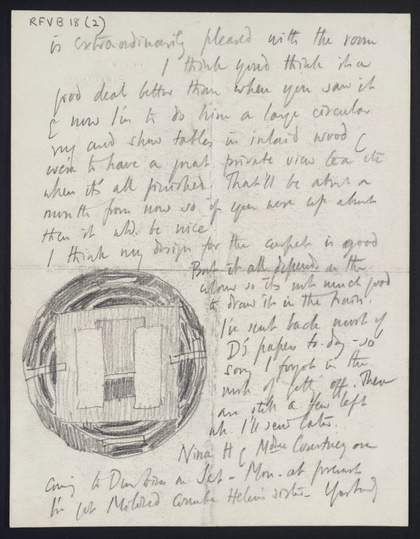 REVB 18 (2)
is extraordinarily pleased with the room
I think you'd think it a
good deal better than when you saw it
& now I'm to do him a large circular
rug and show tables in inlaid wood &
we're to have a great private view tea etc
when it's all finished. That'll be about a
month from now so if you were up about
then it wd. be nice
I think my design for the carpet is good
But it all depends on the
colour so it's not much good
to draw it in the
I've sent back most of
D's papers to-day - so
sorry I forgot in the
rush of getting off. There
are still a few left
wh. I'll send later.
Nina H & Mdme Courtney are
coming to Durbins on Sat - Mon. at present
I've got Mildred Coombe Helen's sister -